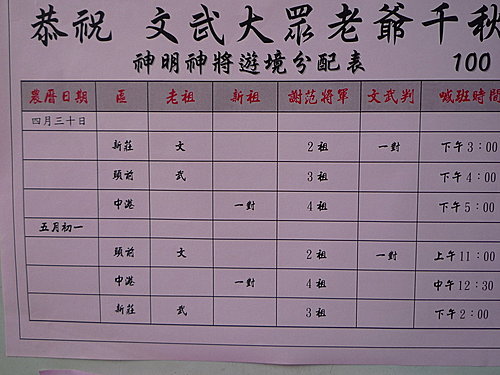 恭祝 文武大眾老爺千秋
神明神將遊境分配表 100
農曆日期 區 老祖 新祖 謝范將軍 文武判 喊班時間
四月三十日
新莊 文 2祖 一對 下午3:00
頭前 武 3祖 下午4:00
中港 一對 4祖 下午5:00
五月初一
頭前 文 2祖 一對 上午11:00
中港 一對 4祖 中午12:30
新莊 武 3祖 下午2:00